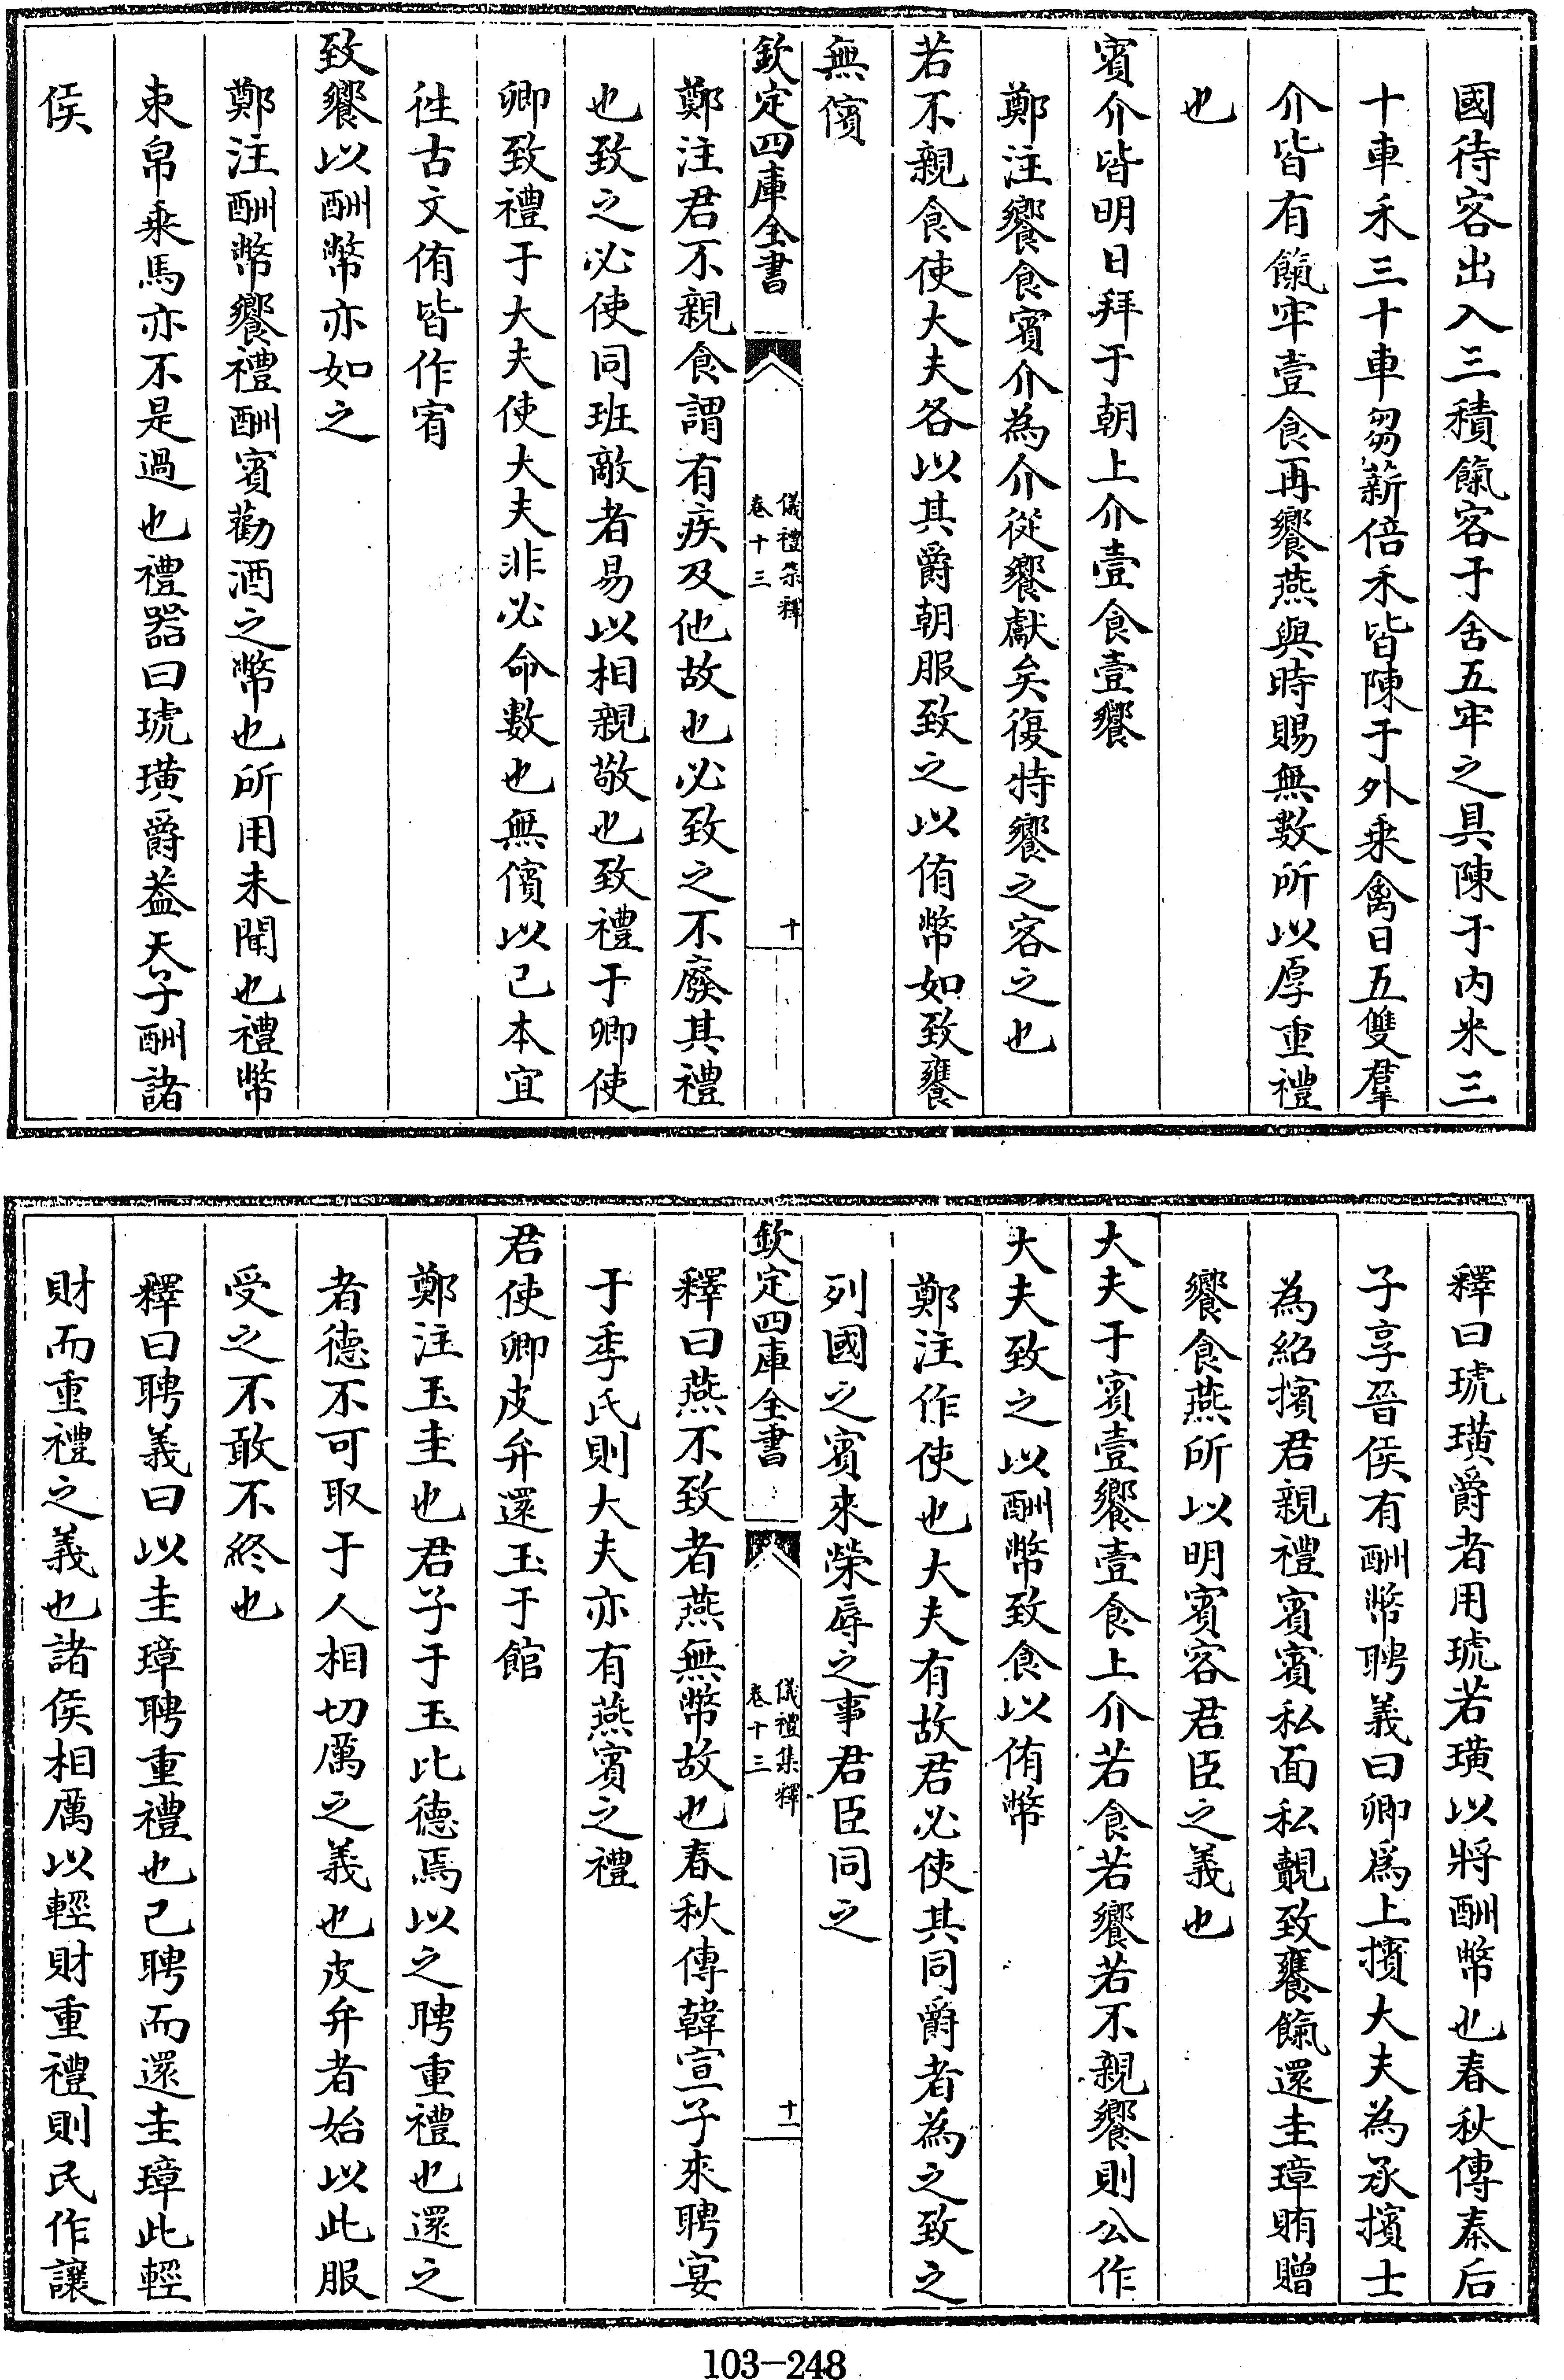 國待客出入三積餼客于舍五牢之具陳于内米三
十車禾三十車芻薪倍禾皆陳于外乗禽日五雙羣
介皆有餼牢壹食再饗燕與時賜無數所以厚重禮
也
賓介皆明日拜于朝上介壹食壹饗
鄭注饗食賓介為介從饗獻矣復特饗之客之也
若不親食使大夫各以其爵朝服致之以侑幣如致饔
無儐
欽定四庫全書
儀禮集釋
卷十三
十
鄭注君不親食謂有疾及他故也必致之不廢其禮
也致之必使同班敵者易以相親敬也致禮于卿使
卿致禮于大夫使大夫非必命數也無儐以己本宜
徃古文侑皆作宥
致饗以酬幣亦如之
鄭注酬幣饗禮酬賓勸酒之幣也所用未聞也禮幣
束帛乗馬亦不是過也禮器曰琥璜爵蓋天子酬諸
侯
釋曰琥璜爵者用琥若璜以將酬幣也春秋傳秦后
子享晉侯有酬幣聘義曰卿為上擯大夫為承擯士
為紹擯君親禮賓賓私面私覿致饔餼還圭璋賄贈
饗食燕所以明賓客君臣之義也
大夫于賓壹饗壹食上介若食若饗若不親饗則公作
大夫致之以酬幣致食以侑幣
鄭注作使也大夫有故君必使其同爵者為之致之
列國之賓來榮辱之事君臣同之
欽定四庫全書
儀禮集釋
卷十三
十一
釋曰燕不致者燕無幣故也春秋傳韓宣子來聘宴
于季氏則大夫亦有燕賓之禮
君使卿皮弁還玉于館
鄭注玉圭也君子于玉比德焉以之聘重禮也還之
者德不可取于人相切厲之義也皮弁者始以此服
受之不敢不終也
釋曰聘義曰以圭璋聘重禮也已聘而還圭璋此輕
財而重禮之義也諸侯相厲以輕財重禮則民作讓
103-248